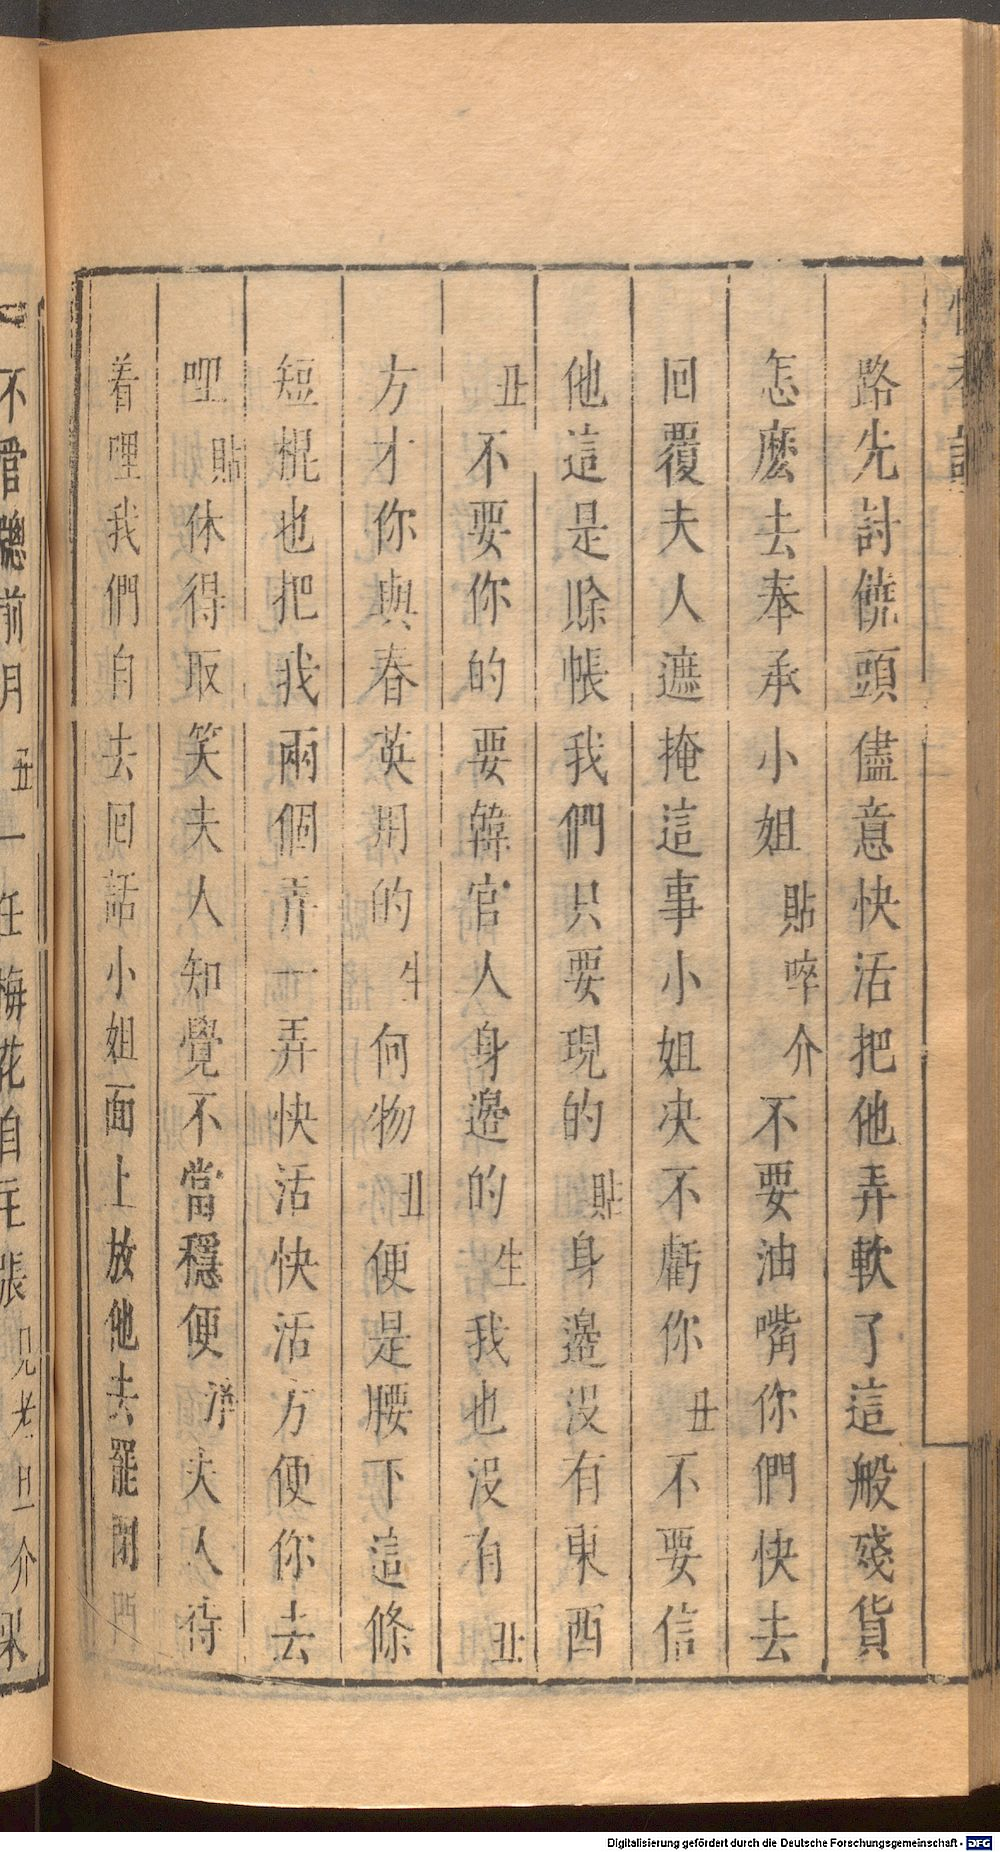 路先討饒頭儘意快活把他弄軟了這般殘貨
怎麽去奉承小姐貼啐介不要油嘴你們快去
回覆夫人遮掩這事小姐决不虧你丑不要信
他這是賒帳我們只要現的貼身邊没有東西
丑不要你的要韓官人身邊的生我也没有丑
方才你與春英用的生何物丑便是腰下這條
短棍也把我兩個弄一弄快活快活方便你去
哩貼休得取笑夫人知覺不當穩便淨夫人待
着哩我們自去回話小姐面上放他去罷閉門
不管牕前月丑一任梅花自主張見老旦介
Digitalisierung gefördert durch die Deutsche Forschungsgemeinschaft - DFG